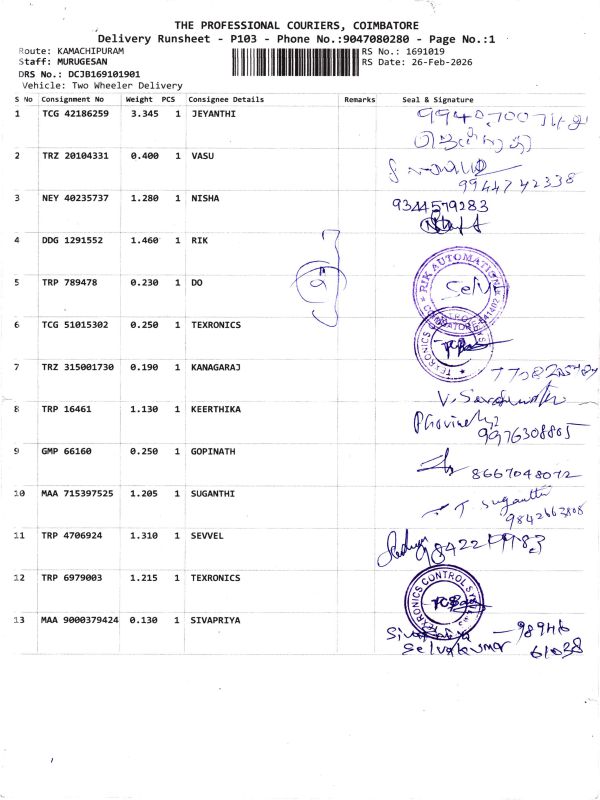 THE PROFESSIONAL COURIERS, COIMBATORE
Delivery Runsheet - P103 - Phone No.:9047080280 - Page No.:1
Route: KAMACHIPURAM
RS No.: 1691019
Staff: MURUGESAN
RS Date: 26-Feb-2026
DRS No.: DCJB169101901
Vehicle: Two Wheeler Delivery
S No Consignment No Weight PCS Consignee Details Remarks Seal & Signature
1 TCG 42186259 3.345 1 JEYANTHI
2 TRZ 20104331 0.400 1 VASU
9944742338
3 NEY 40235737 1.280 1 NISHA 9344579283
4 DDG 1291552 1.460 1 RIK
RIK AUTOMATION
5 TRP 789478 0.230 1 DO
6 TCG 51015302 0.250 1 TEXRONICS
7 TRZ 315001730 0.190 1 KANAGARAJ
8 TRP 16461 1.130 1 KEERTHIKA
9976308805
9 GMP 66160 0.250 1 GOPINATH
8667048072
10 MAA 715397525 1.205 1 SUGANTHI
T Suganthi
9842663808
11 TRP 4706924 1.310 1 SEVVEL
12 TRP 6979003 1.215 1 TEXRONICS
TEXRONICS CONTROLS
13 MAA 9000379424 0.130 1 SIVAPRIYA
98946
Selvakumar 61038